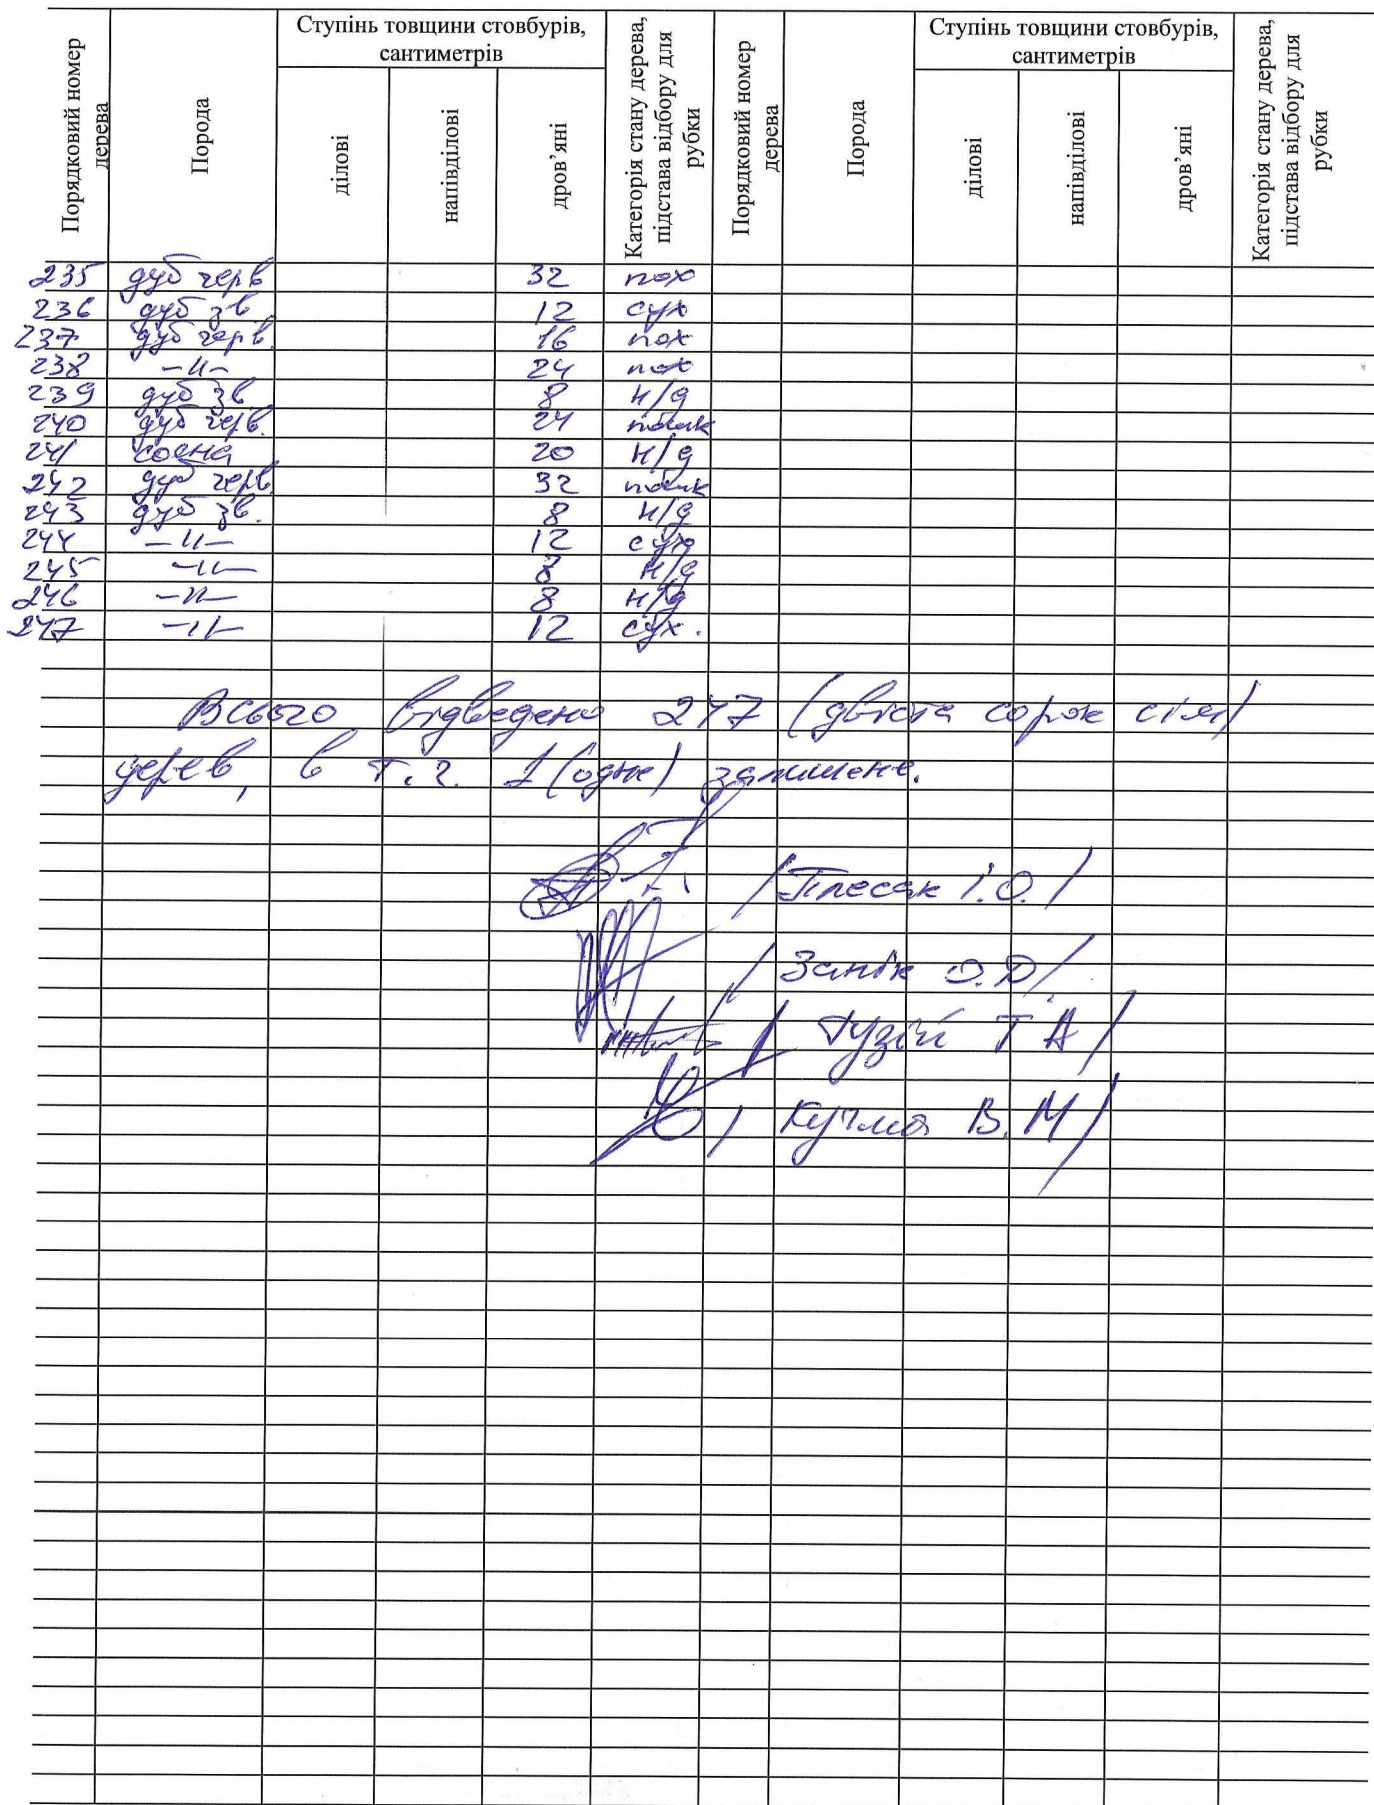 Порядковий номер дерева Порода Ступінь товщини стовбурів, сантиметрів ділові напівділові дров’яні Категорія стану дерева, підстава відбору для рубки Порядковий номер дерева Порода Ступінь товщини стовбурів, сантиметрів ділові напівділові дров’яні Категорія стану дерева, підстава відбору для рубки
235 дуб черв 32 пох
236 дуб зв 12 сух
237 дуб черв. 16 пох
238 -//- 24 пох
239 дуб зв 8 н/д
240 дуб черв. 24
241 сосна 20 н/д
242 дуб черв. 32
243 дуб зв. 8 н/д
244 -//- 12 сух
245 -//- 8 н/д
246 -//- 8 н/д
247 -//- 12 сух.
Всього відведено 247 (двіста сорок сім)
дерев, в т.ч. 1 (одне) залишене.
/Плесак І.О./
/Занік О.Д/
/Гузій Т А/
/Кучма В.М/